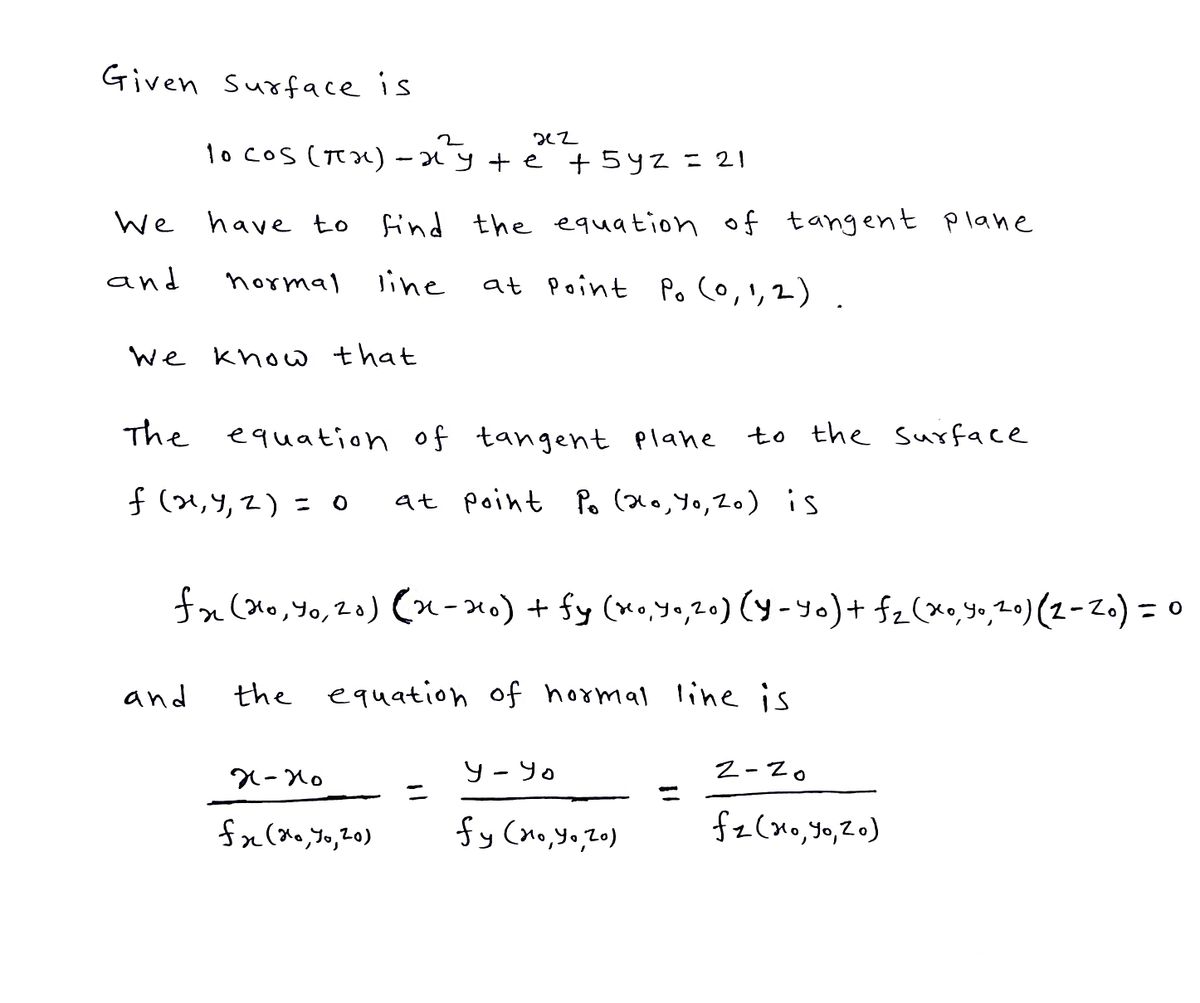 Given surface is
10 cos (πx) - x²y + e^{xz} + 5yz = 21
We have to find the equation of tangent plane
and normal line at point P₀ (0,1,2) .
We know that
The equation of tangent plane to the surface
f (x,y,z) = 0 at point P₀ (x₀,y₀,z₀) is
fₓ(x₀,y₀,z₀) (x-x₀) + f_y (x₀,y₀,z₀) (y-y₀) + f_z(x₀,y₀,z₀)(z-z₀) = 0
and the equation of normal line is
\frac{x-x₀}{fₓ(x₀,y₀,z₀)} = \frac{y-y₀}{f_y(x₀,y₀,z₀)} = \frac{z-z₀}{f_z(x₀,y₀,z₀)}